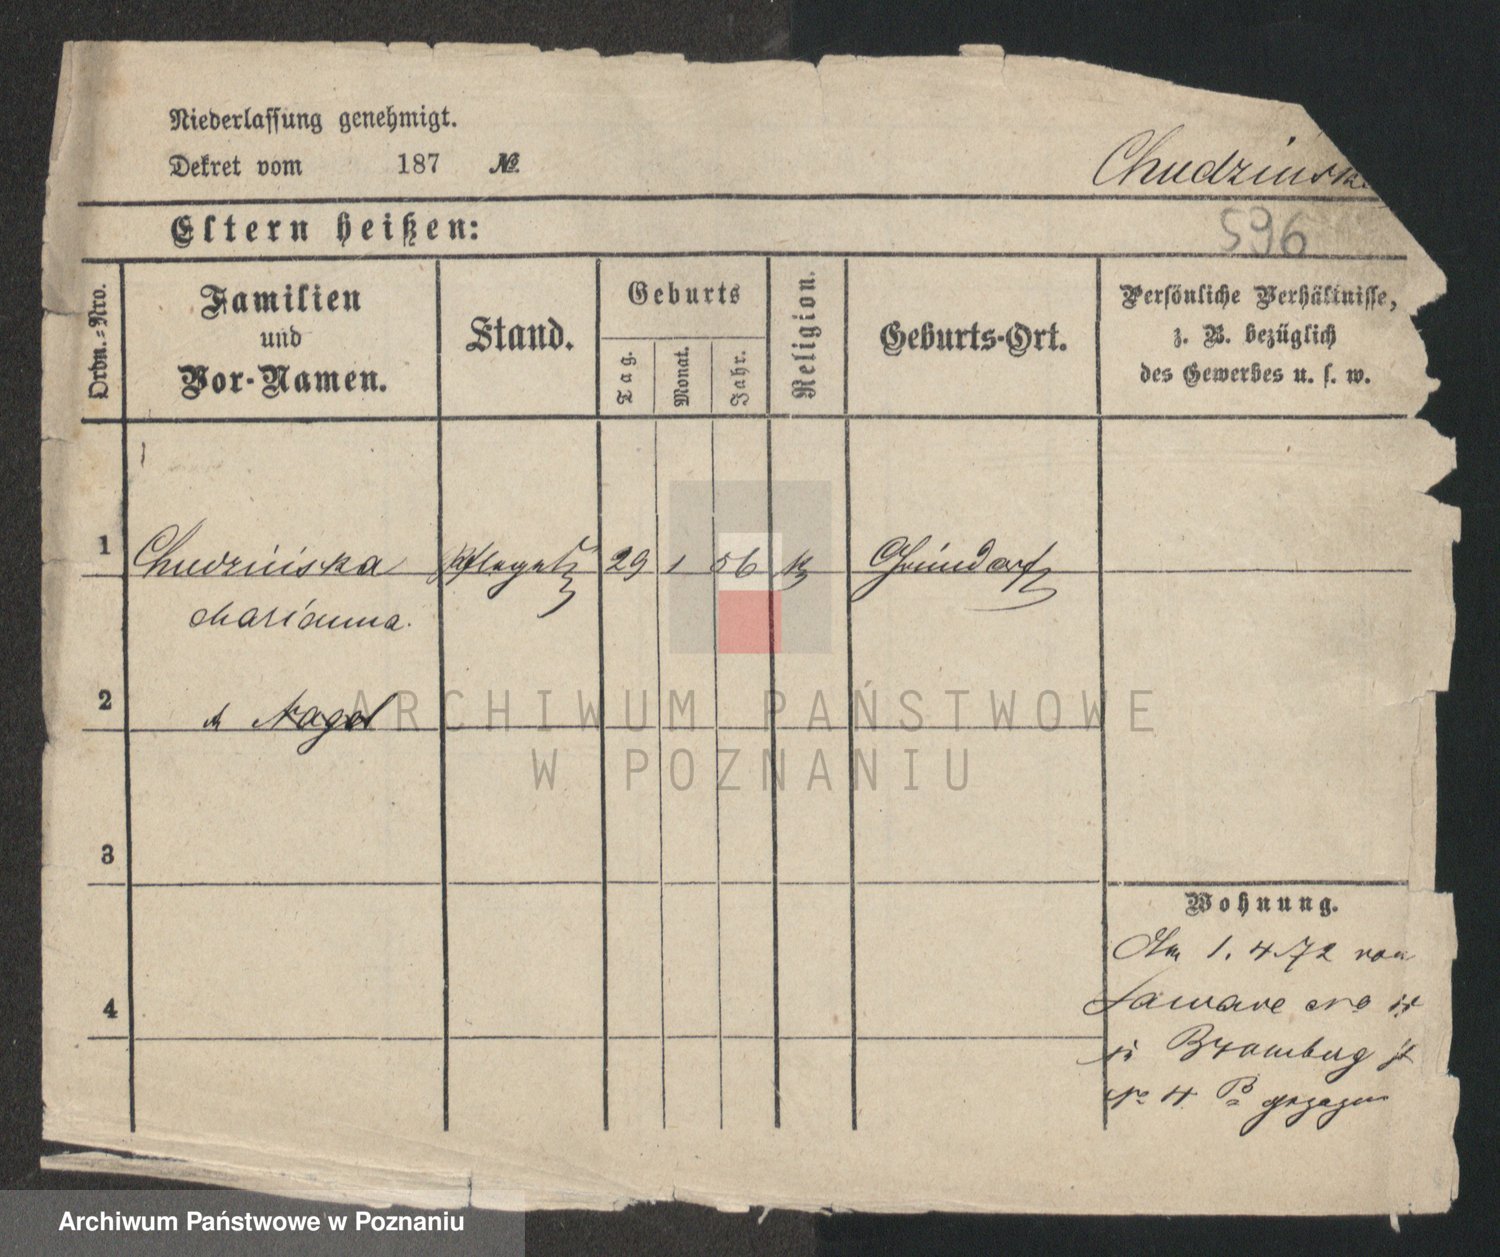 Niederlassung genehmigt.
Dekret vom 187 №
Chudzińska
596
Eltern heißen:
Ordn.-Nro.
Familien
und
Vor-Namen.
Stand.
Geburts
Tag.
Monat.
Jahr.
Religion.
Geburts-Ort.
Persönliche Verhältnisse,
z. B. bezüglich
des Gewerbes u. s. w.
1 Chudzińska 29 1 56 k
Marianna.
2 Nagel
3
4
Wohnung.
Am 1. 4 72 von
No
Bromberg
No 4 gezogen
ARCHIWUM PAŃSTWOWE
W POZNANIU
Archiwum Państwowe w Poznaniu